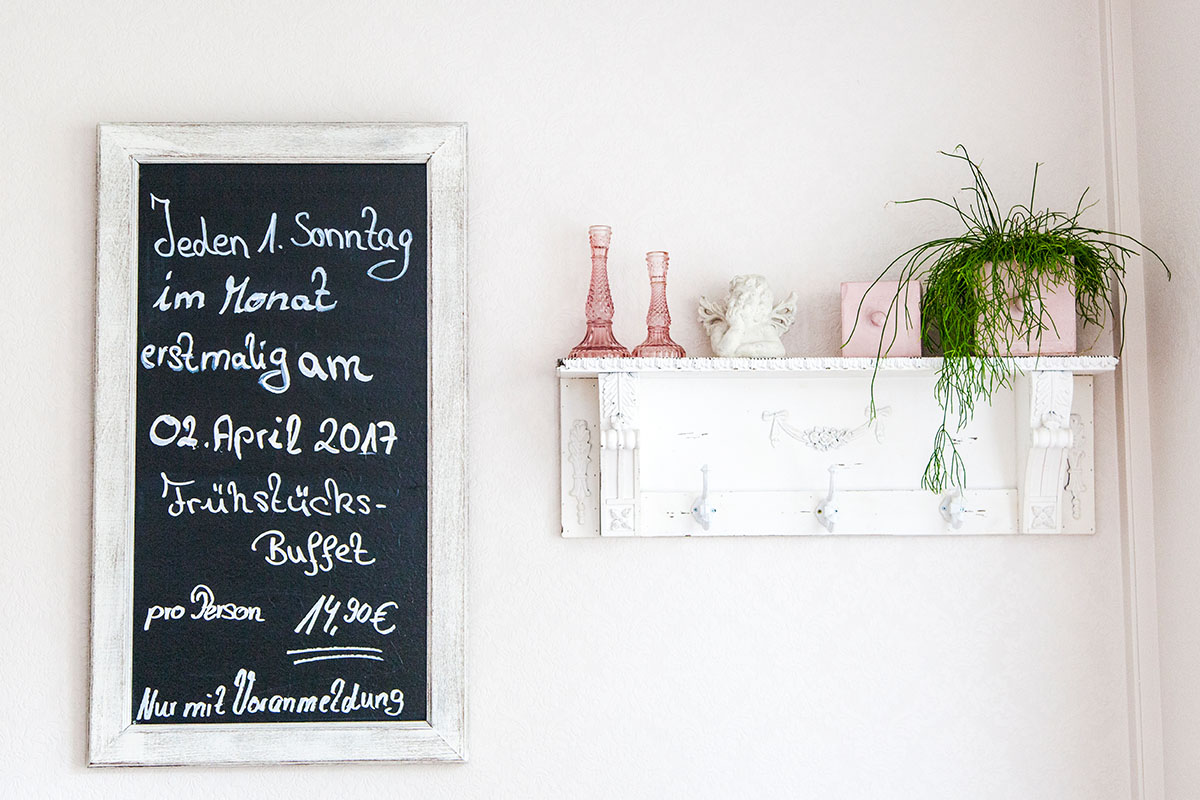 Jeden 1. Sonntag
im Monat
erstmalig am
02. April 2017
Frühstücks-
Buffet
pro Person 14,90€
Nur mit Voranmeldung